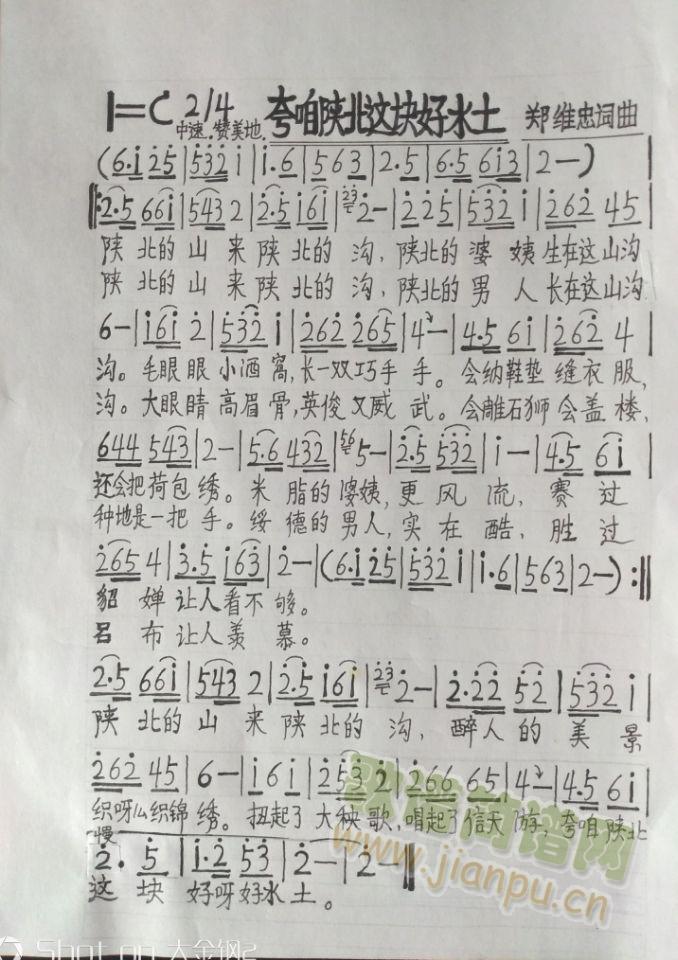 1=C 2/4 夸咱陕北这块好水土 郑维忠词曲
中速.赞美地.
(6·i 25|532 i|i·6|563|2·5|6·5 613|2—)
‖:2·5 66i|543 2|2·5 i6i|23 2—|2 25|532 i|262 45|
陕北的山来陕北的沟,陕北的婆姨生在这山沟
陕北的山来陕北的沟,陕北的男人长在这山沟
6—|i6i 2|532 i|262 265|4—|4·5 6i|262 4|
沟。毛眼眼小酒窝,长一双巧手手。会纳鞋垫缝衣服,
沟。大眼睛高眉骨,英俊又威武。会雕石狮会盖楼,
644 543|2—|5·6 432|56 5—|2·5 532|i—|4·5 6i|
还会把荷包绣。米脂的婆姨,更风流,赛过
种地是一把手。绥德的男人,实在酷,胜过
265 4|3·5 i63|2—|(6·i 25|532 i|i·6|563|2—):‖
貂婵让人看不够。
吕布让人羡慕。
2·5 66i|543 2|2·5 i6i|23 2—|2·22 52|532 i|
陕北的山来陕北的沟,醉人的美景
262 45|6—|i6i|253 2|266 65|4—|4·5 6i|
织呀么织锦绣。扭起了大秧歌,唱起了信天游,夸咱陕北
慢
2· 5|i·2 53|2—|2—‖
这块好呀好水土。
www.jianpu.cn
Shot on 大金钢2